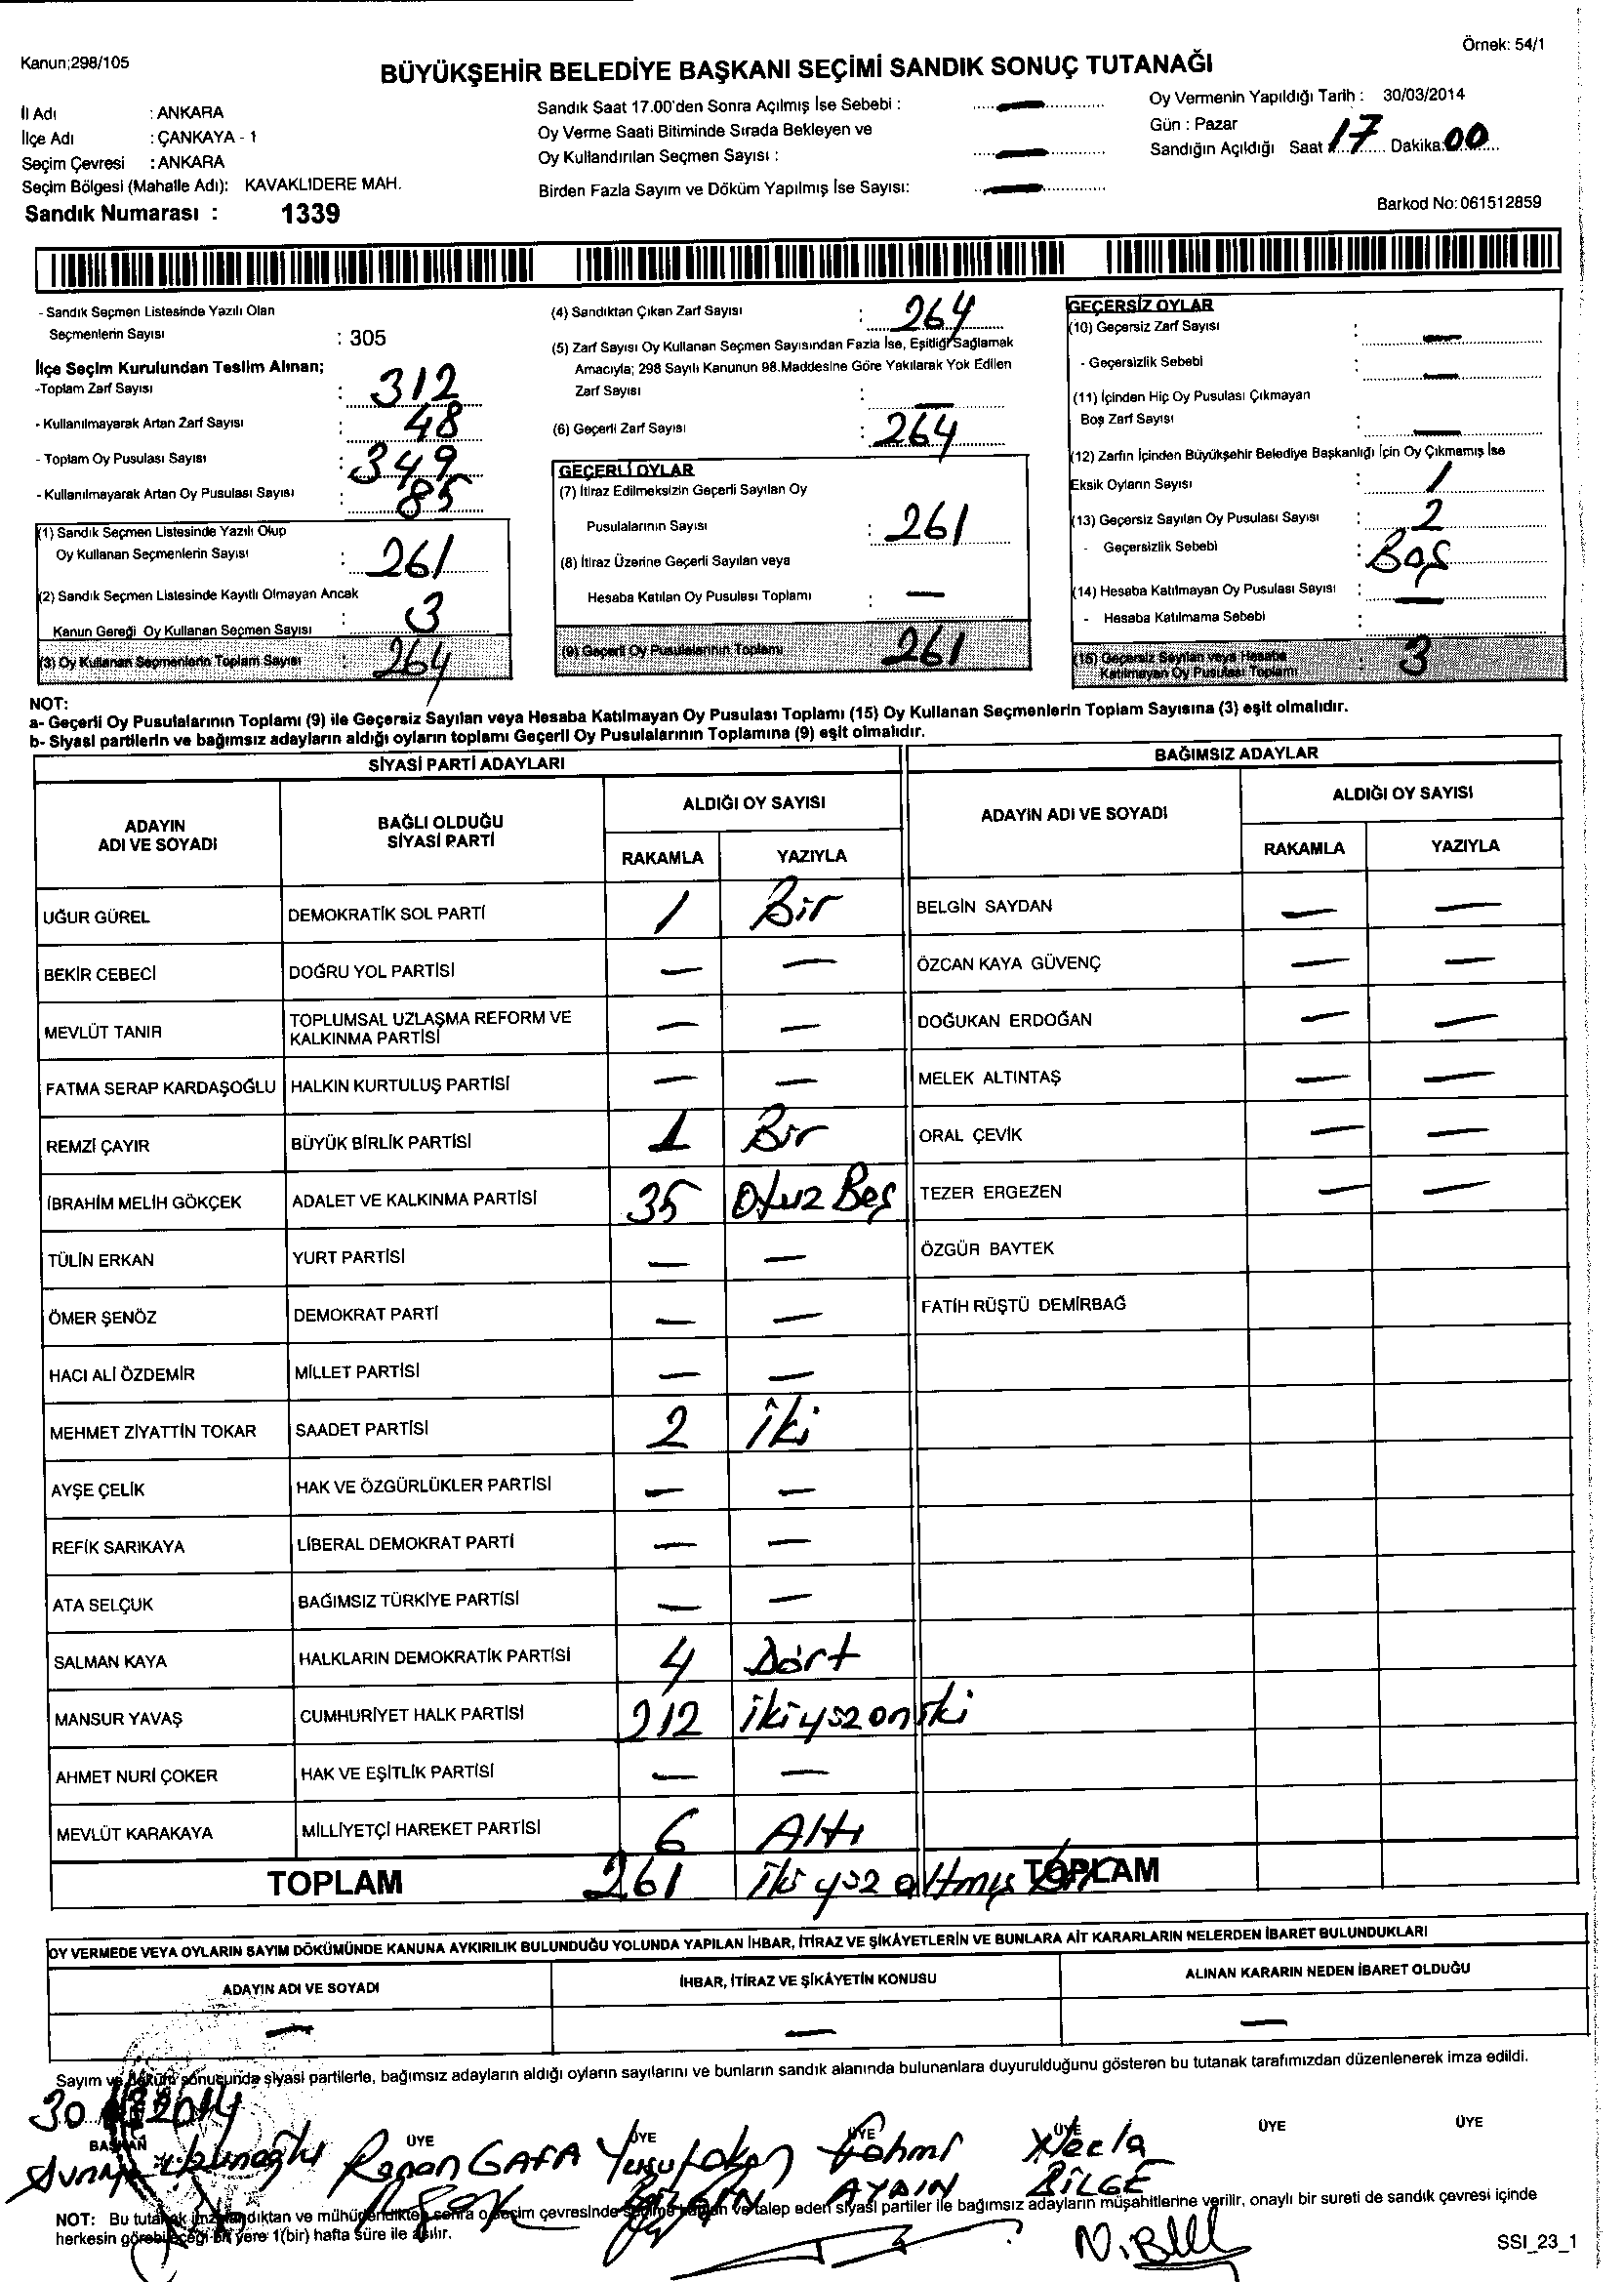 Örnek: 54/1
Kanun;298/105
BÜYÜKŞEHİR BELEDİYE BAŞKANI SEÇİMİ SANDIK SONUÇ TUTANAĞI
İl Adı : ANKARA
İlçe Adı : ÇANKAYA - 1
Seçim Çevresi : ANKARA
Seçim Bölgesi (Mahalle Adı): KAVAKLIDERE MAH.
Sandık Numarası : 1339
Sandık Saat 17.00'den Sonra Açılmış İse Sebebi : —
Oy Verme Saati Bitiminde Sırada Bekleyen ve
Oy Kullandırılan Seçmen Sayısı : —
Birden Fazla Sayım ve Döküm Yapılmış İse Sayısı: —
Oy Vermenin Yapıldığı Tarih : 30/03/2014
Gün : Pazar
Sandığın Açıldığı Saat 17 Dakika: 00
Barkod No: 061512859
- Sandık Seçmen Listesinde Yazılı Olan
Seçmenlerin Sayısı : 305
İlçe Seçim Kurulundan Teslim Alınan;
-Toplam Zarf Sayısı : 312
- Kullanılmayarak Artan Zarf Sayısı : 48
- Toplam Oy Pusulası Sayısı : 349
- Kullanılmayarak Artan Oy Pusulası Sayısı : 85
(1) Sandık Seçmen Listesinde Yazılı Olup
Oy Kullanan Seçmenlerin Sayısı : 261
(2) Sandık Seçmen Listesinde Kayıtlı Olmayan Ancak
Kanun Gereği Oy Kullanan Seçmen Sayısı : 3
(3) Oy Kullanan Seçmenlerin Toplam Sayısı : 264
(4) Sandıktan Çıkan Zarf Sayısı : 264
(5) Zarf Sayısı Oy Kullanan Seçmen Sayısından Fazla İse, Eşitliği Sağlamak
Amacıyla; 298 Sayılı Kanunun 98.Maddesine Göre Yakılarak Yok Edilen
Zarf Sayısı : —
(6) Geçerli Zarf Sayısı : 264
GEÇERLİ OYLAR
(7) İtiraz Edilmeksizin Geçerli Sayılan Oy
Pusulalarının Sayısı : 261
(8) İtiraz Üzerine Geçerli Sayılan veya
Hesaba Katılan Oy Pusulası Toplamı : —
(9) Geçerli Oy Pusulalarının Toplamı 261
GEÇERSİZ OYLAR
(10) Geçersiz Zarf Sayısı : —
- Geçersizlik Sebebi : —
(11) İçinden Hiç Oy Pusulası Çıkmayan
Boş Zarf Sayısı : —
(12) Zarfın İçinden Büyükşehir Belediye Başkanlığı İçin Oy Çıkmamış İse
Eksik Oyların Sayısı : 1
(13) Geçersiz Sayılan Oy Pusulası Sayısı : 2
- Geçersizlik Sebebi : Boş
(14) Hesaba Katılmayan Oy Pusulası Sayısı : —
- Hesaba Katılmama Sebebi :
(15) Geçersiz Sayılan veya Hesaba
Katılmayan Oy Pusulası Toplamı : 3
NOT:
a- Geçerli Oy Pusulalarının Toplamı (9) ile Geçersiz Sayılan veya Hesaba Katılmayan Oy Pusulası Toplamı (15) Oy Kullanan Seçmenlerin Toplam Sayısına (3) eşit olmalıdır.
b- Siyasi partilerin ve bağımsız adayların aldığı oyların toplamı Geçerli Oy Pusulalarının Toplamına (9) eşit olmalıdır.
SİYASİ PARTİ ADAYLARI
ADAYIN ADI VE SOYADI BAĞLI OLDUĞU SİYASİ PARTİ ALDIĞI OY SAYISI
RAKAMLA YAZIYLA
UĞUR GÜREL DEMOKRATİK SOL PARTİ 1 Bir
BEKİR CEBECİ DOĞRU YOL PARTİSİ — —
MEVLÜT TANIR TOPLUMSAL UZLAŞMA REFORM VE KALKINMA PARTİSİ — —
FATMA SERAP KARDAŞOĞLU HALKIN KURTULUŞ PARTİSİ — —
REMZİ ÇAYIR BÜYÜK BİRLİK PARTİSİ 1 Bir
İBRAHİM MELİH GÖKÇEK ADALET VE KALKINMA PARTİSİ 35 Otuz Beş
TÜLİN ERKAN YURT PARTİSİ — —
ÖMER ŞENÖZ DEMOKRAT PARTİ — —
HACI ALİ ÖZDEMİR MİLLET PARTİSİ — —
MEHMET ZİYATTİN TOKAR SAADET PARTİSİ 2 İki
AYŞE ÇELİK HAK VE ÖZGÜRLÜKLER PARTİSİ — —
REFİK SARIKAYA LİBERAL DEMOKRAT PARTİ — —
ATA SELÇUK BAĞIMSIZ TÜRKİYE PARTİSİ — —
SALMAN KAYA HALKLARIN DEMOKRATİK PARTİSİ 4 Dört
MANSUR YAVAŞ CUMHURİYET HALK PARTİSİ 212 ikiyüzoniki
AHMET NURİ ÇOKER HAK VE EŞİTLİK PARTİSİ — —
MEVLÜT KARAKAYA MİLLİYETÇİ HAREKET PARTİSİ 6 Altı
TOPLAM 261 iki yüz altmış bir
BAĞIMSIZ ADAYLAR
ADAYIN ADI VE SOYADI ALDIĞI OY SAYISI
RAKAMLA YAZIYLA
BELGİN SAYDAN — —
ÖZCAN KAYA GÜVENÇ — —
DOĞUKAN ERDOĞAN — —
MELEK ALTINTAŞ — —
ORAL ÇEVİK — —
TEZER ERGEZEN — —
ÖZGÜR BAYTEK
FATİH RÜŞTÜ DEMİRBAĞ
TOPLAM
OY VERMEDE VEYA OYLARIN SAYIM DÖKÜMÜNDE KANUNA AYKIRILIK BULUNDUĞU YOLUNDA YAPILAN İHBAR, İTİRAZ VE ŞİKÂYETLERİN VE BUNLARA AİT KARARLARIN NELERDEN İBARET BULUNDUKLARI
ADAYIN ADI VE SOYADI İHBAR, İTİRAZ VE ŞİKÂYETİN KONUSU ALINAN KARARIN NEDEN İBARET OLDUĞU
— — —
Sayım ve döküm sonucunda siyasi partilerle, bağımsız adayların aldığı oyların sayılarını ve bunların sandık alanında bulunanlara duyurulduğunu gösteren bu tutanak tarafımızdan düzenlenerek imza edildi.
30 2014
BAŞKAN ÜYE ÜYE ÜYE ÜYE ÜYE ÜYE
Fehmi Necla
AYDIN BİLGE
NOT: Bu tutanak imzalandıktan ve mühürlendikten sonra o seçim çevresinde seçime katılan ve talep eden siyasi partiler ile bağımsız adayların müşahitlerine verilir, onaylı bir sureti de sandık çevresi içinde
herkesin görebileceği bir yere 1(bir) hafta süre ile asılır.
N.Bll
SSI_23_1